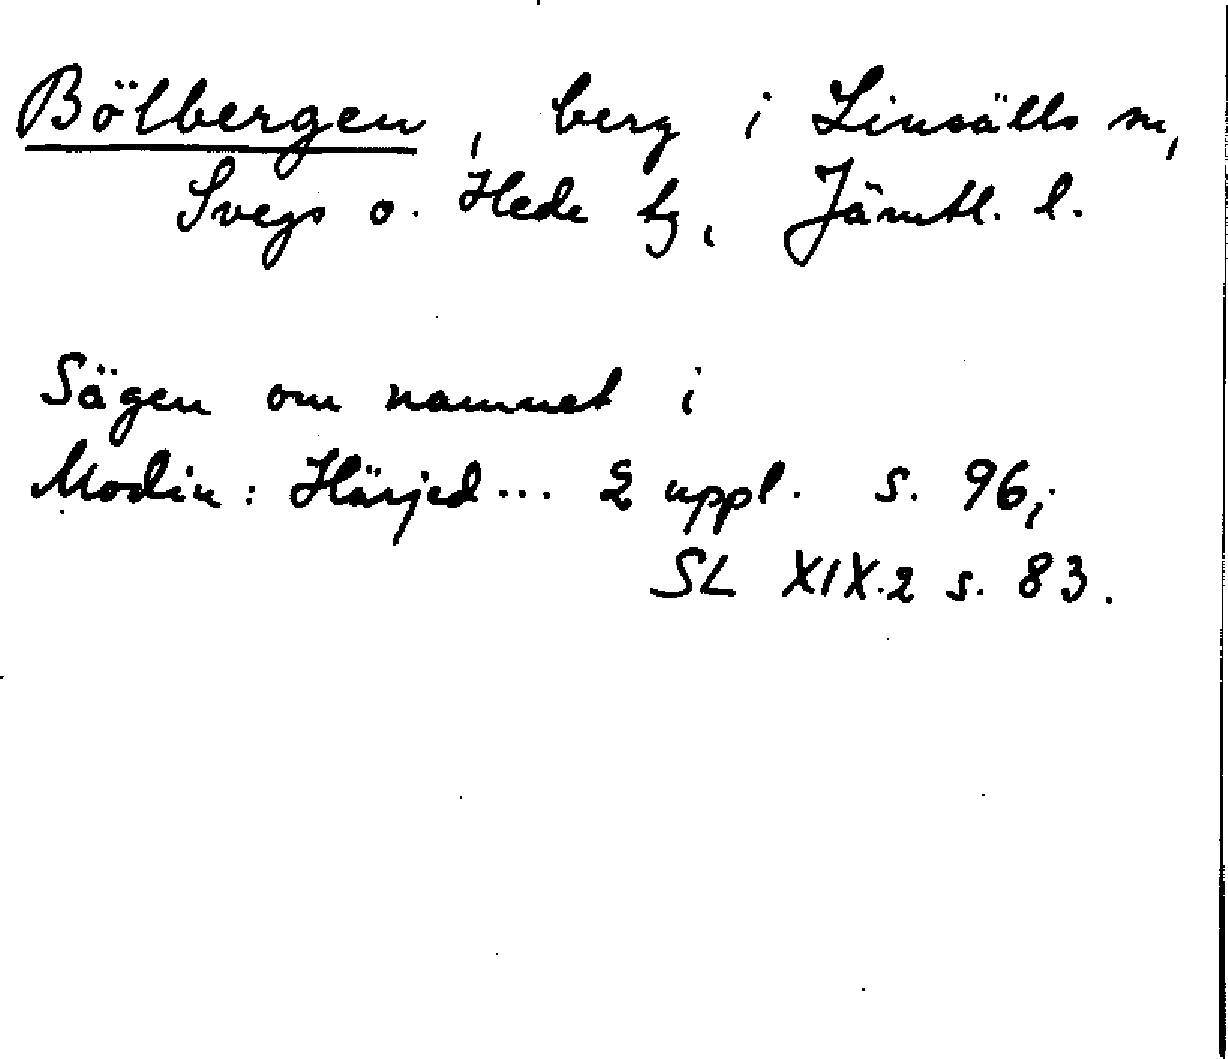 Bölbergen, berg i Linsälls sn,
Svegs o. Hede tg, Jämtl. l.
Sägen om namnet i
Modin: Härjed... 2 uppl. s. 96;
SL XIX.2 s. 83.